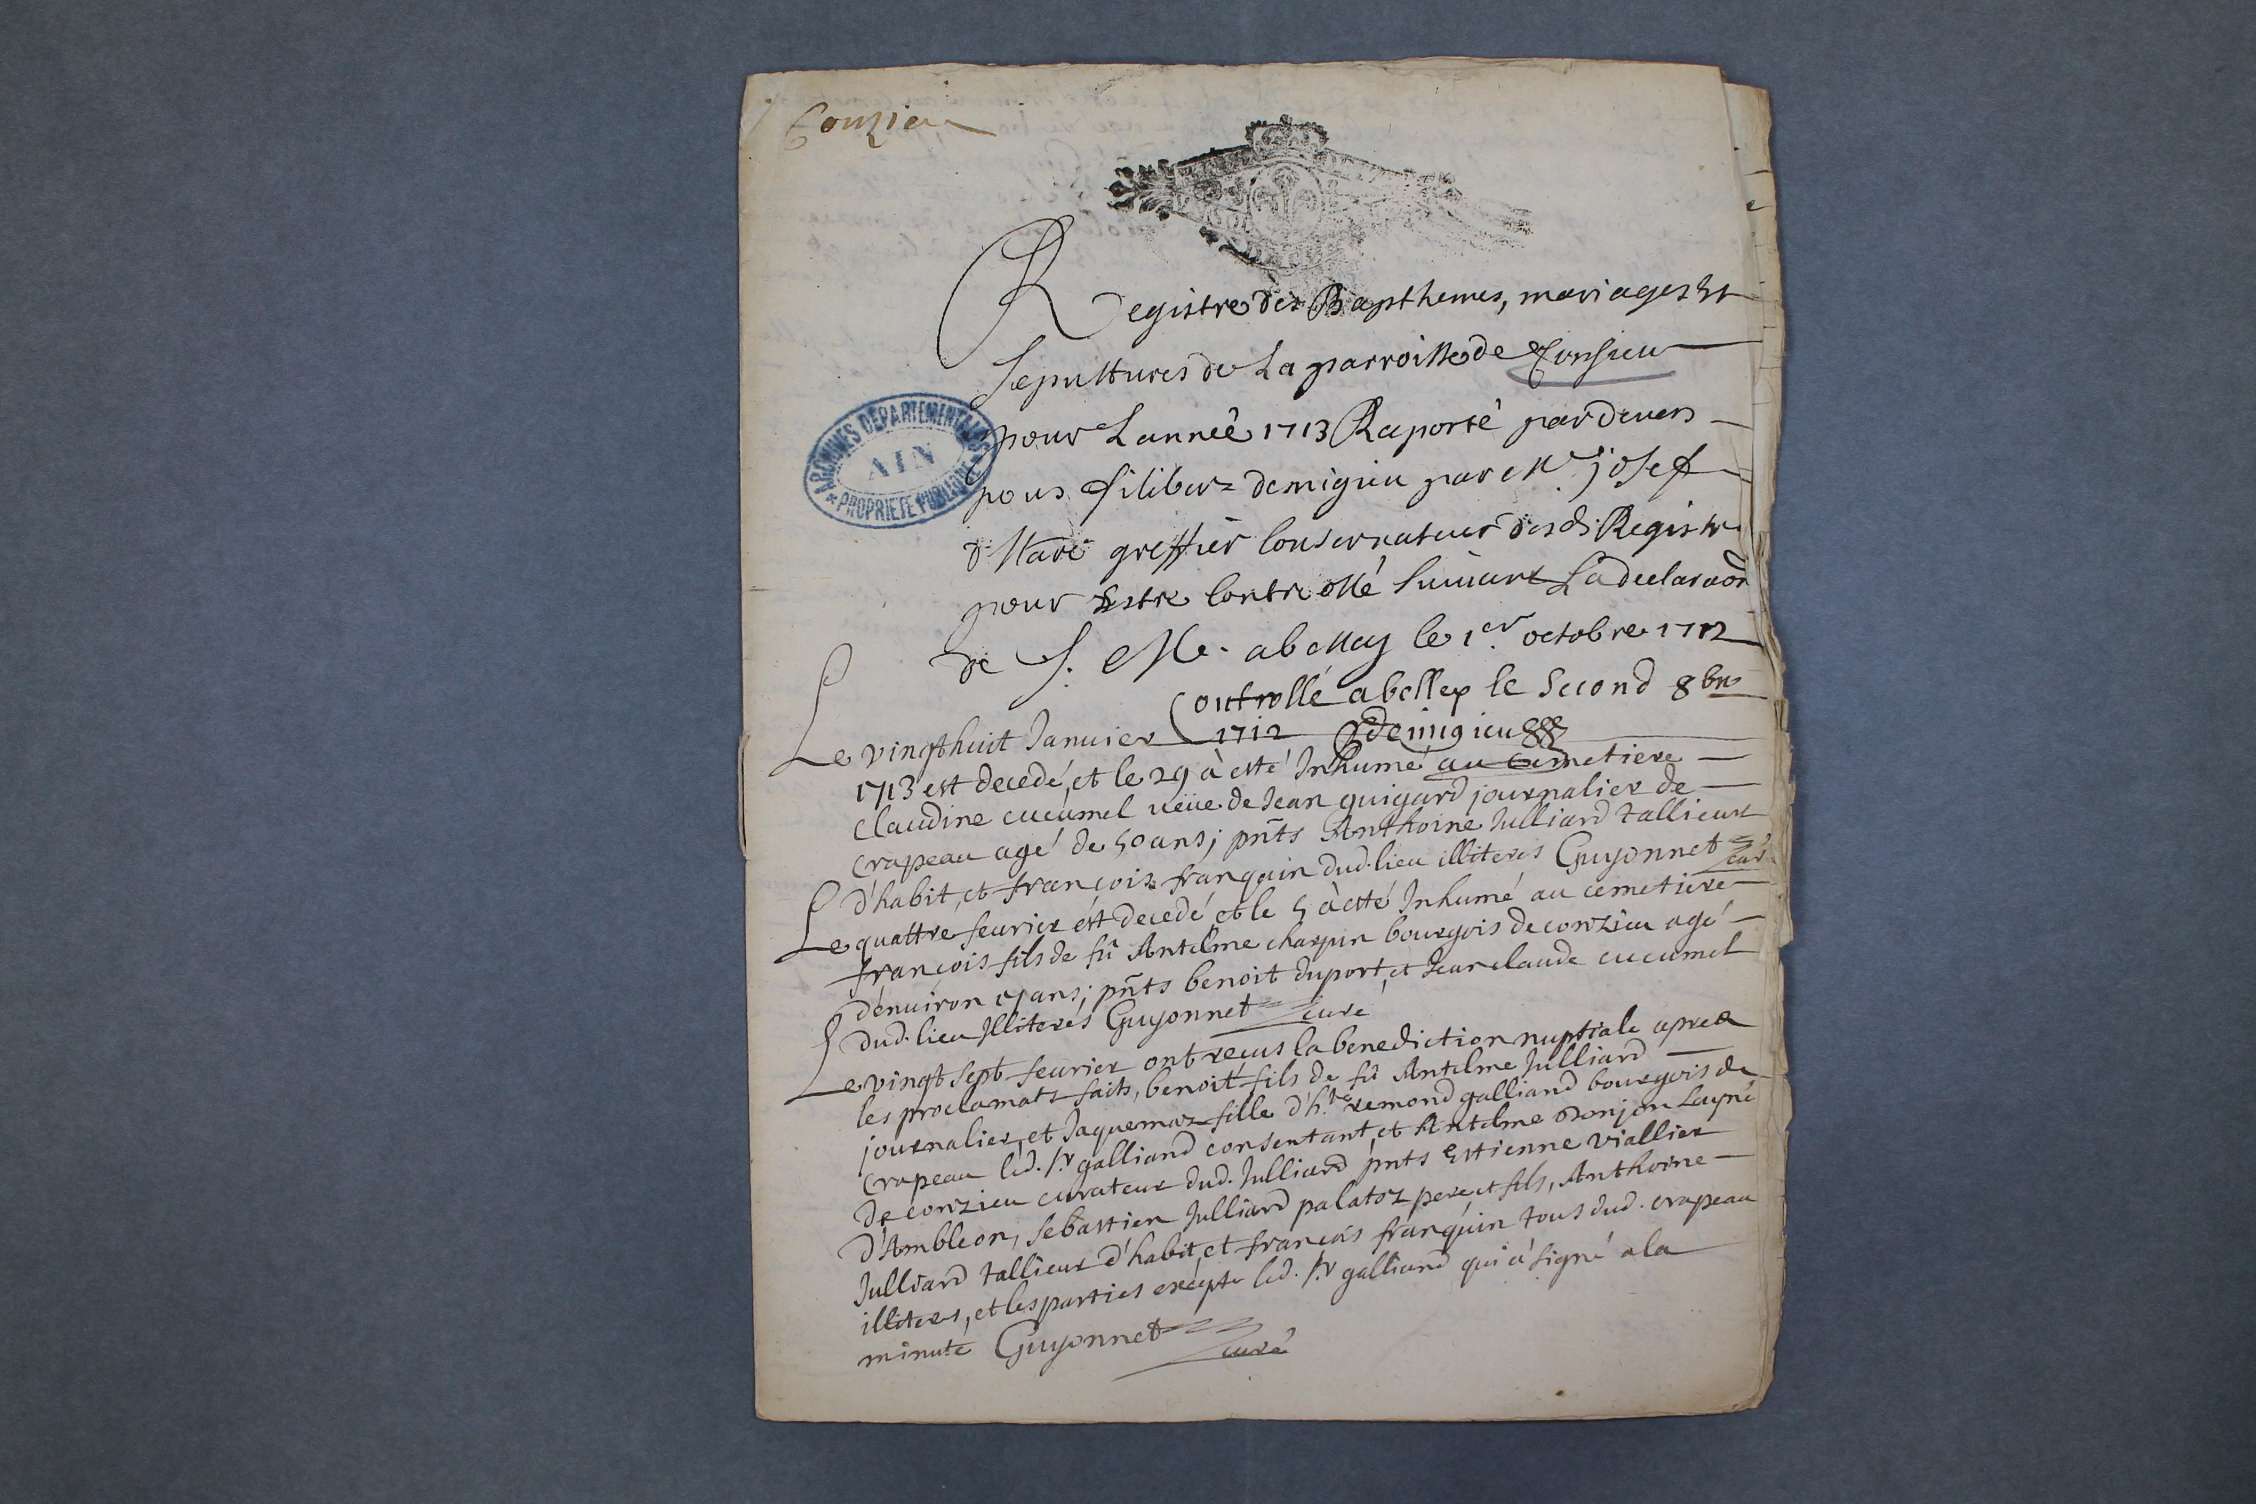 Conzieu
Registre des Bapthemes, mariages Et
Sepultures de La parroisse de Consieu
pour L année 1713 Raporté par devers
nous filibert demigieu par Mr. josef
greffier Conservateur desd. Registre
pour Estre Controllé Suivant La declaraon
de S. M. a bellay le 1er. octobre 1712
Controllé a belley le Second 8bre
1712 demigieu
ARCHIVES DEPARTEMENTALES
AIN
* PROPRIETE PUBLIQUE *
Le vingthuit Januier
1713 est decedé, et le 29 à esté Inhumé au Cemetiere
Claudine cucumel veüe de Jean guigard journalier de
Crapeau agé de 50 ans; pñts Anthoine Julliard tallieur
d'habit, et françois franquin dud. lieu illiterés Guyonnet curé
Le quattre feurier est decedé et le 5 à esté Inhumé au cemetiere
françois fils de fû Antelme charpin bourgois de conzieu agé
d'enuiron ans; pñts benoit duport, et Jean claude cucumel
dud. lieu Illiterés Guyonnet curé
Le vingt sept feurier ont reçus la benediction nuptiale apres
les proclamats faits, benoit fils de fû Antelme Julliard
journalier, et Jaquemaz fille d'h.ble remond galliand bourgois de
Crapeau led. Sr galliand consentant, et Antelme bonjon Layné
de conzieu curateur dud. Julliard pnts Estienne viallier
d'Ambleon, sebastien Julliard palatoz pere et fils, Anthoine
Julliard tallieur d'habit, et françois franquin tous dud. crapeau
illiteres, et les parties excepte led. Sr galliand qui à signé a la
minute Guyonnet curé